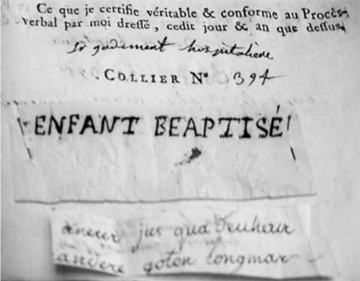 Ce que je certifie véritable & conforme au Procès-
verbal par moi dressé, cedit jour & an que dessus,
hospitaliere
COLLIER N° 394
ENFANT BEAPTISÉ
jus qua
goton longmar